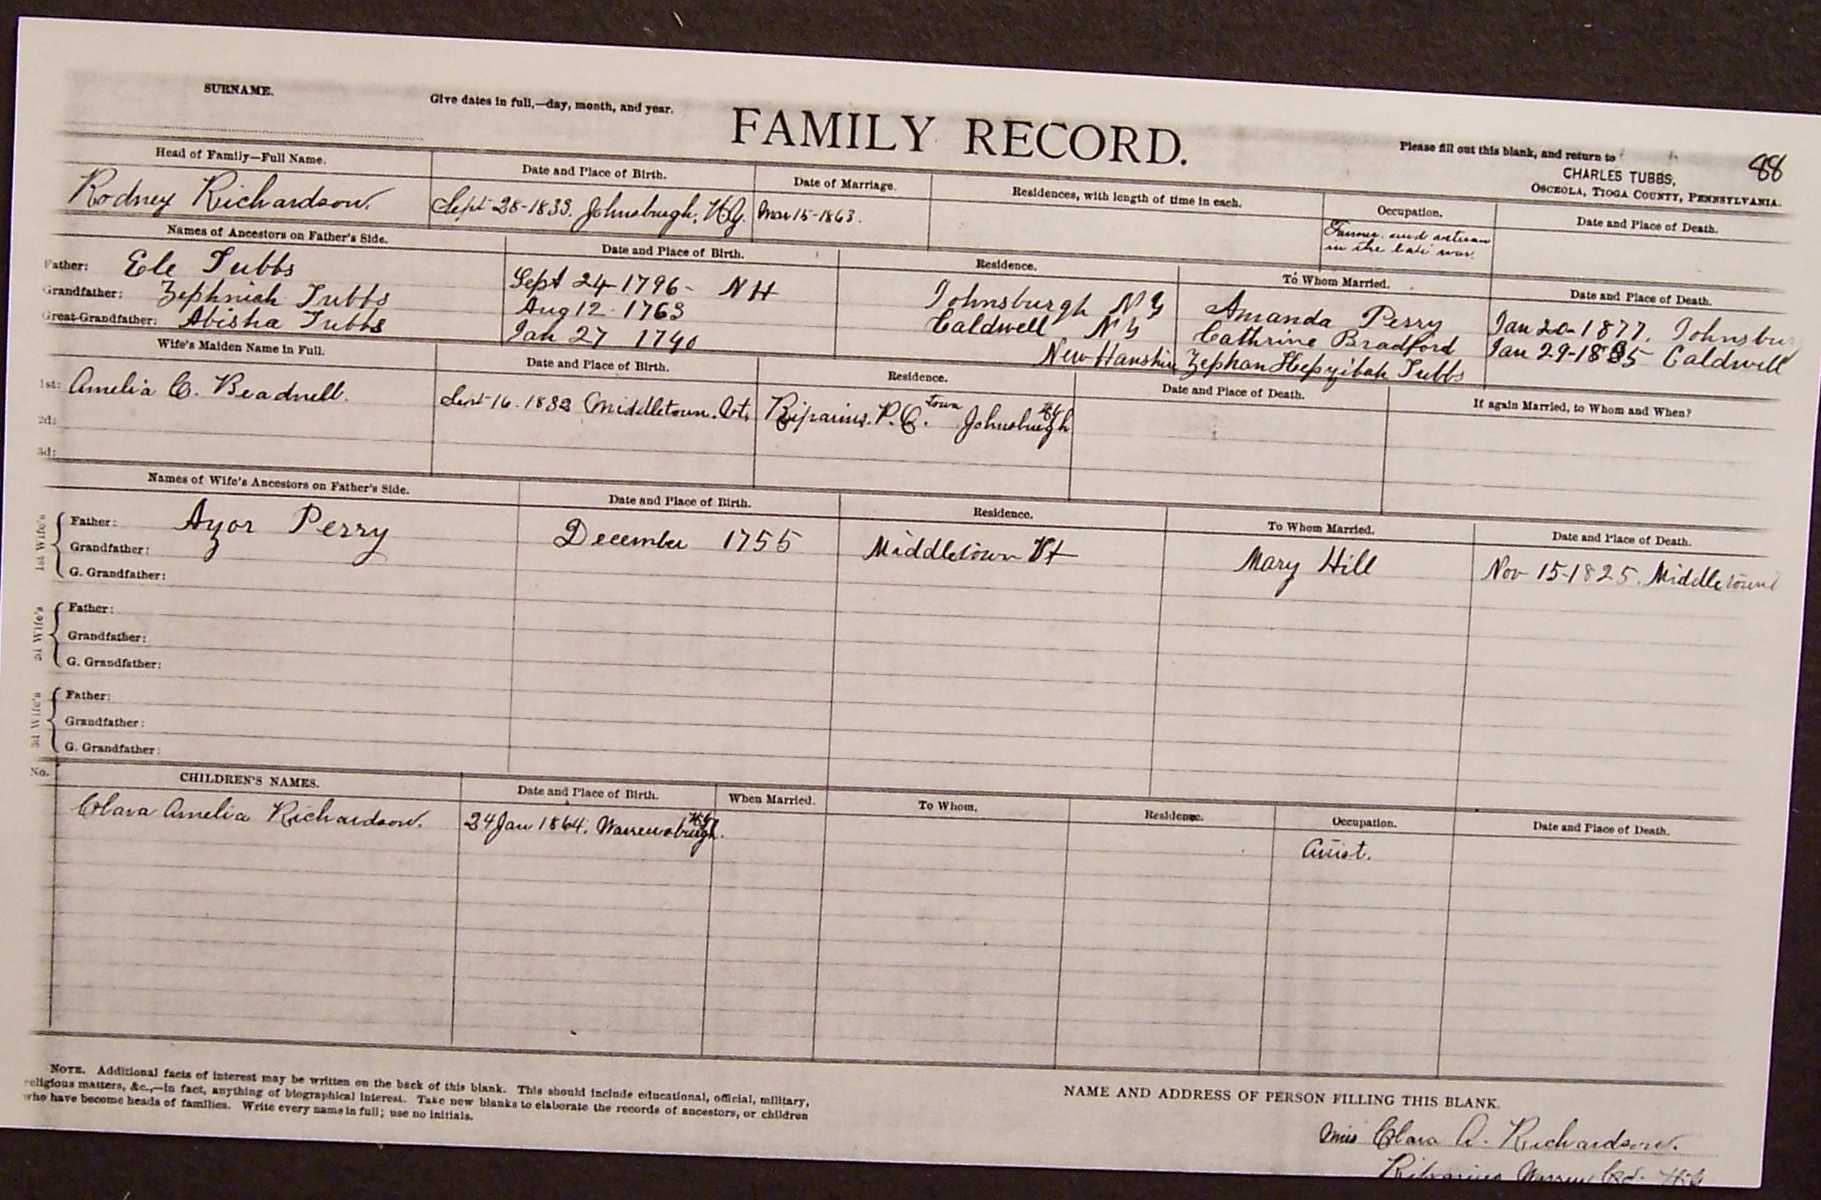 SURNAME.
Give dates in full,—day, month, and year.
FAMILY RECORD.
Please fill out this blank, and return to
CHARLES TUBBS,
OSCEOLA, TIOGA COUNTY, PENNSYLVANIA.
88
Head of Family—Full Name. Date and Place of Birth. Date of Marriage. Residences, with length of time in each. Occupation. Date and Place of Death.
Rodney Richardson. Sept 28-1833. Johnsburgh, N.Y. Mar 15-1863. Farmer and veteran
in the late war.
Names of Ancestors on Father's Side. Date and Place of Birth. Residence. To Whom Married. Date and Place of Death.
Father: Ele Tubbs Sept 24-1796- N H Johnsburgh N Y Amanda Perry Jan 20-1877. Johnsbur
Grandfather: Zephniah Tubbs Aug 12-1763 Caldwell N Y Cathrine Bradford Jan 29-1835 Caldwell
Great-Grandfather: Abisha Tubbs Jan 27 1740 New Hanshire Zephan Hepzibah Tubbs
Wife's Maiden Name in Full. Date and Place of Birth. Residence. Date and Place of Death. If again Married, to Whom and When?
1st: Amelia C. Beadnell. Sept-16-1832 Middletown. Vt. Riparius. P.O. town Johnsburgh NY
2d:
3d:
Names of Wife's Ancestors on Father's Side. Date and Place of Birth. Residence. To Whom Married. Date and Place of Death.
1st Wife's
Father: Azor Perry December 1755 Middletown Vt Mary Hill Nov 15-1825. Middletown
Grandfather:
G. Grandfather:
2d Wife's
Father:
Grandfather:
G. Grandfather:
3d Wife's
Father:
Grandfather:
G. Grandfather:
No. CHILDREN'S NAMES. Date and Place of Birth. When Married. To Whom. Residence. Occupation. Date and Place of Death.
Clara Amelia Richardson. 24 Jan 1864. Warrensburgh. NY Artist.
NOTE. Additional facts of interest may be written on the back of this blank. This should include educational, official, military,
religious matters, &c.,—in fact, anything of biographical interest. Take new blanks to elaborate the records of ancestors, or children
who have become heads of families. Write every name in full; use no initials.
NAME AND ADDRESS OF PERSON FILLING THIS BLANK.
Miss Clara A. Richardson.
Riparius Warren Co. N.Y.